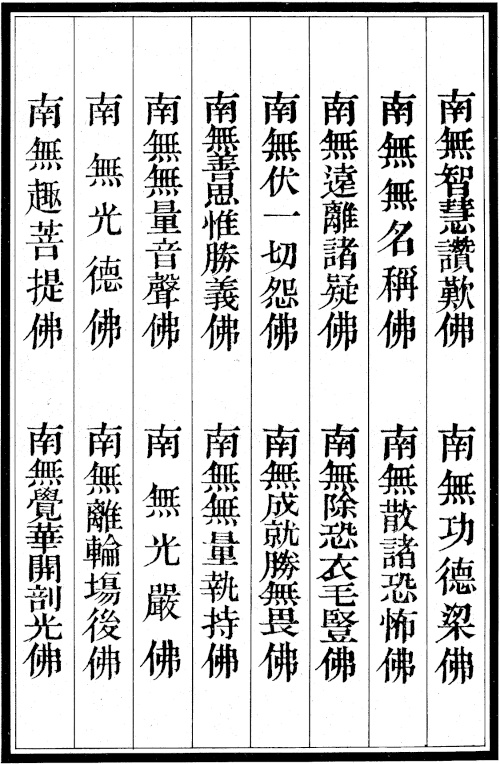 南無智慧讚歎佛　南無功德梁佛
南無無名稱佛　南無散諸恐怖佛
南無遠離諸疑佛　南無除恐衣毛豎佛
南無伏一切怨佛　南無成就勝無畏佛
南無善思惟勝義佛　南無無量執持佛
南無無量音聲佛　南無光嚴佛
南無光德佛　南無離輪場後佛
南無趣菩提佛　南無覺華開剖光佛